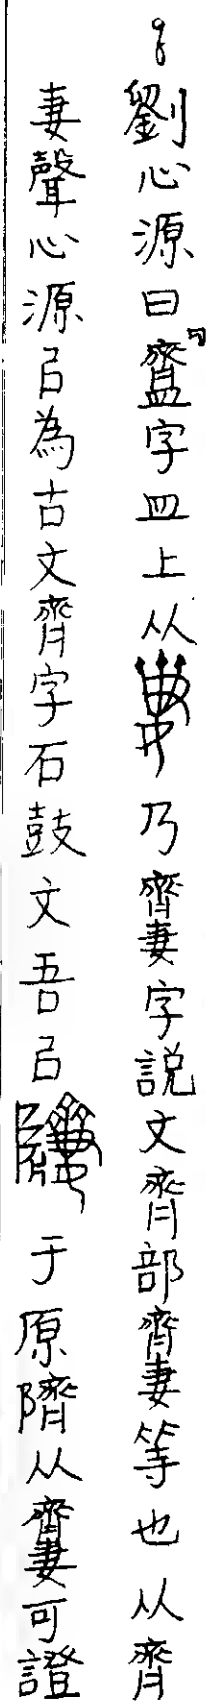 劉心源曰「齍字皿上从乃𪗍字說文齊部𪗍等也从齊
妻聲心源㠯為古文齊字石鼓文吾㠯于原隮从𪗍可證